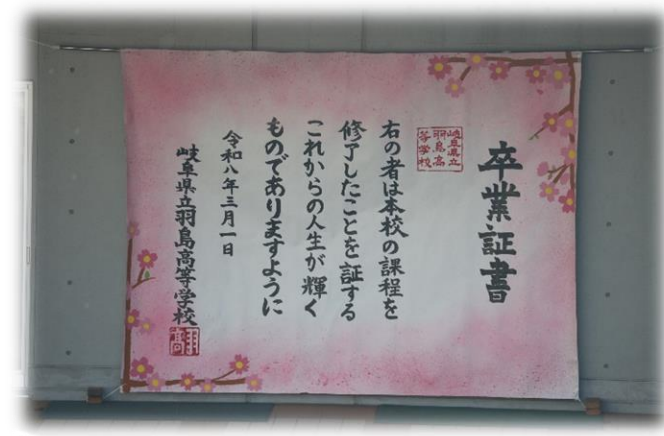 卒業証書
岐阜県立
羽島高
等学校
右の者は本校の課程を
修了したことを証する
これからの人生が輝く
ものでありますように
令和八年三月一日
岐阜県立羽島高等学校
羽高